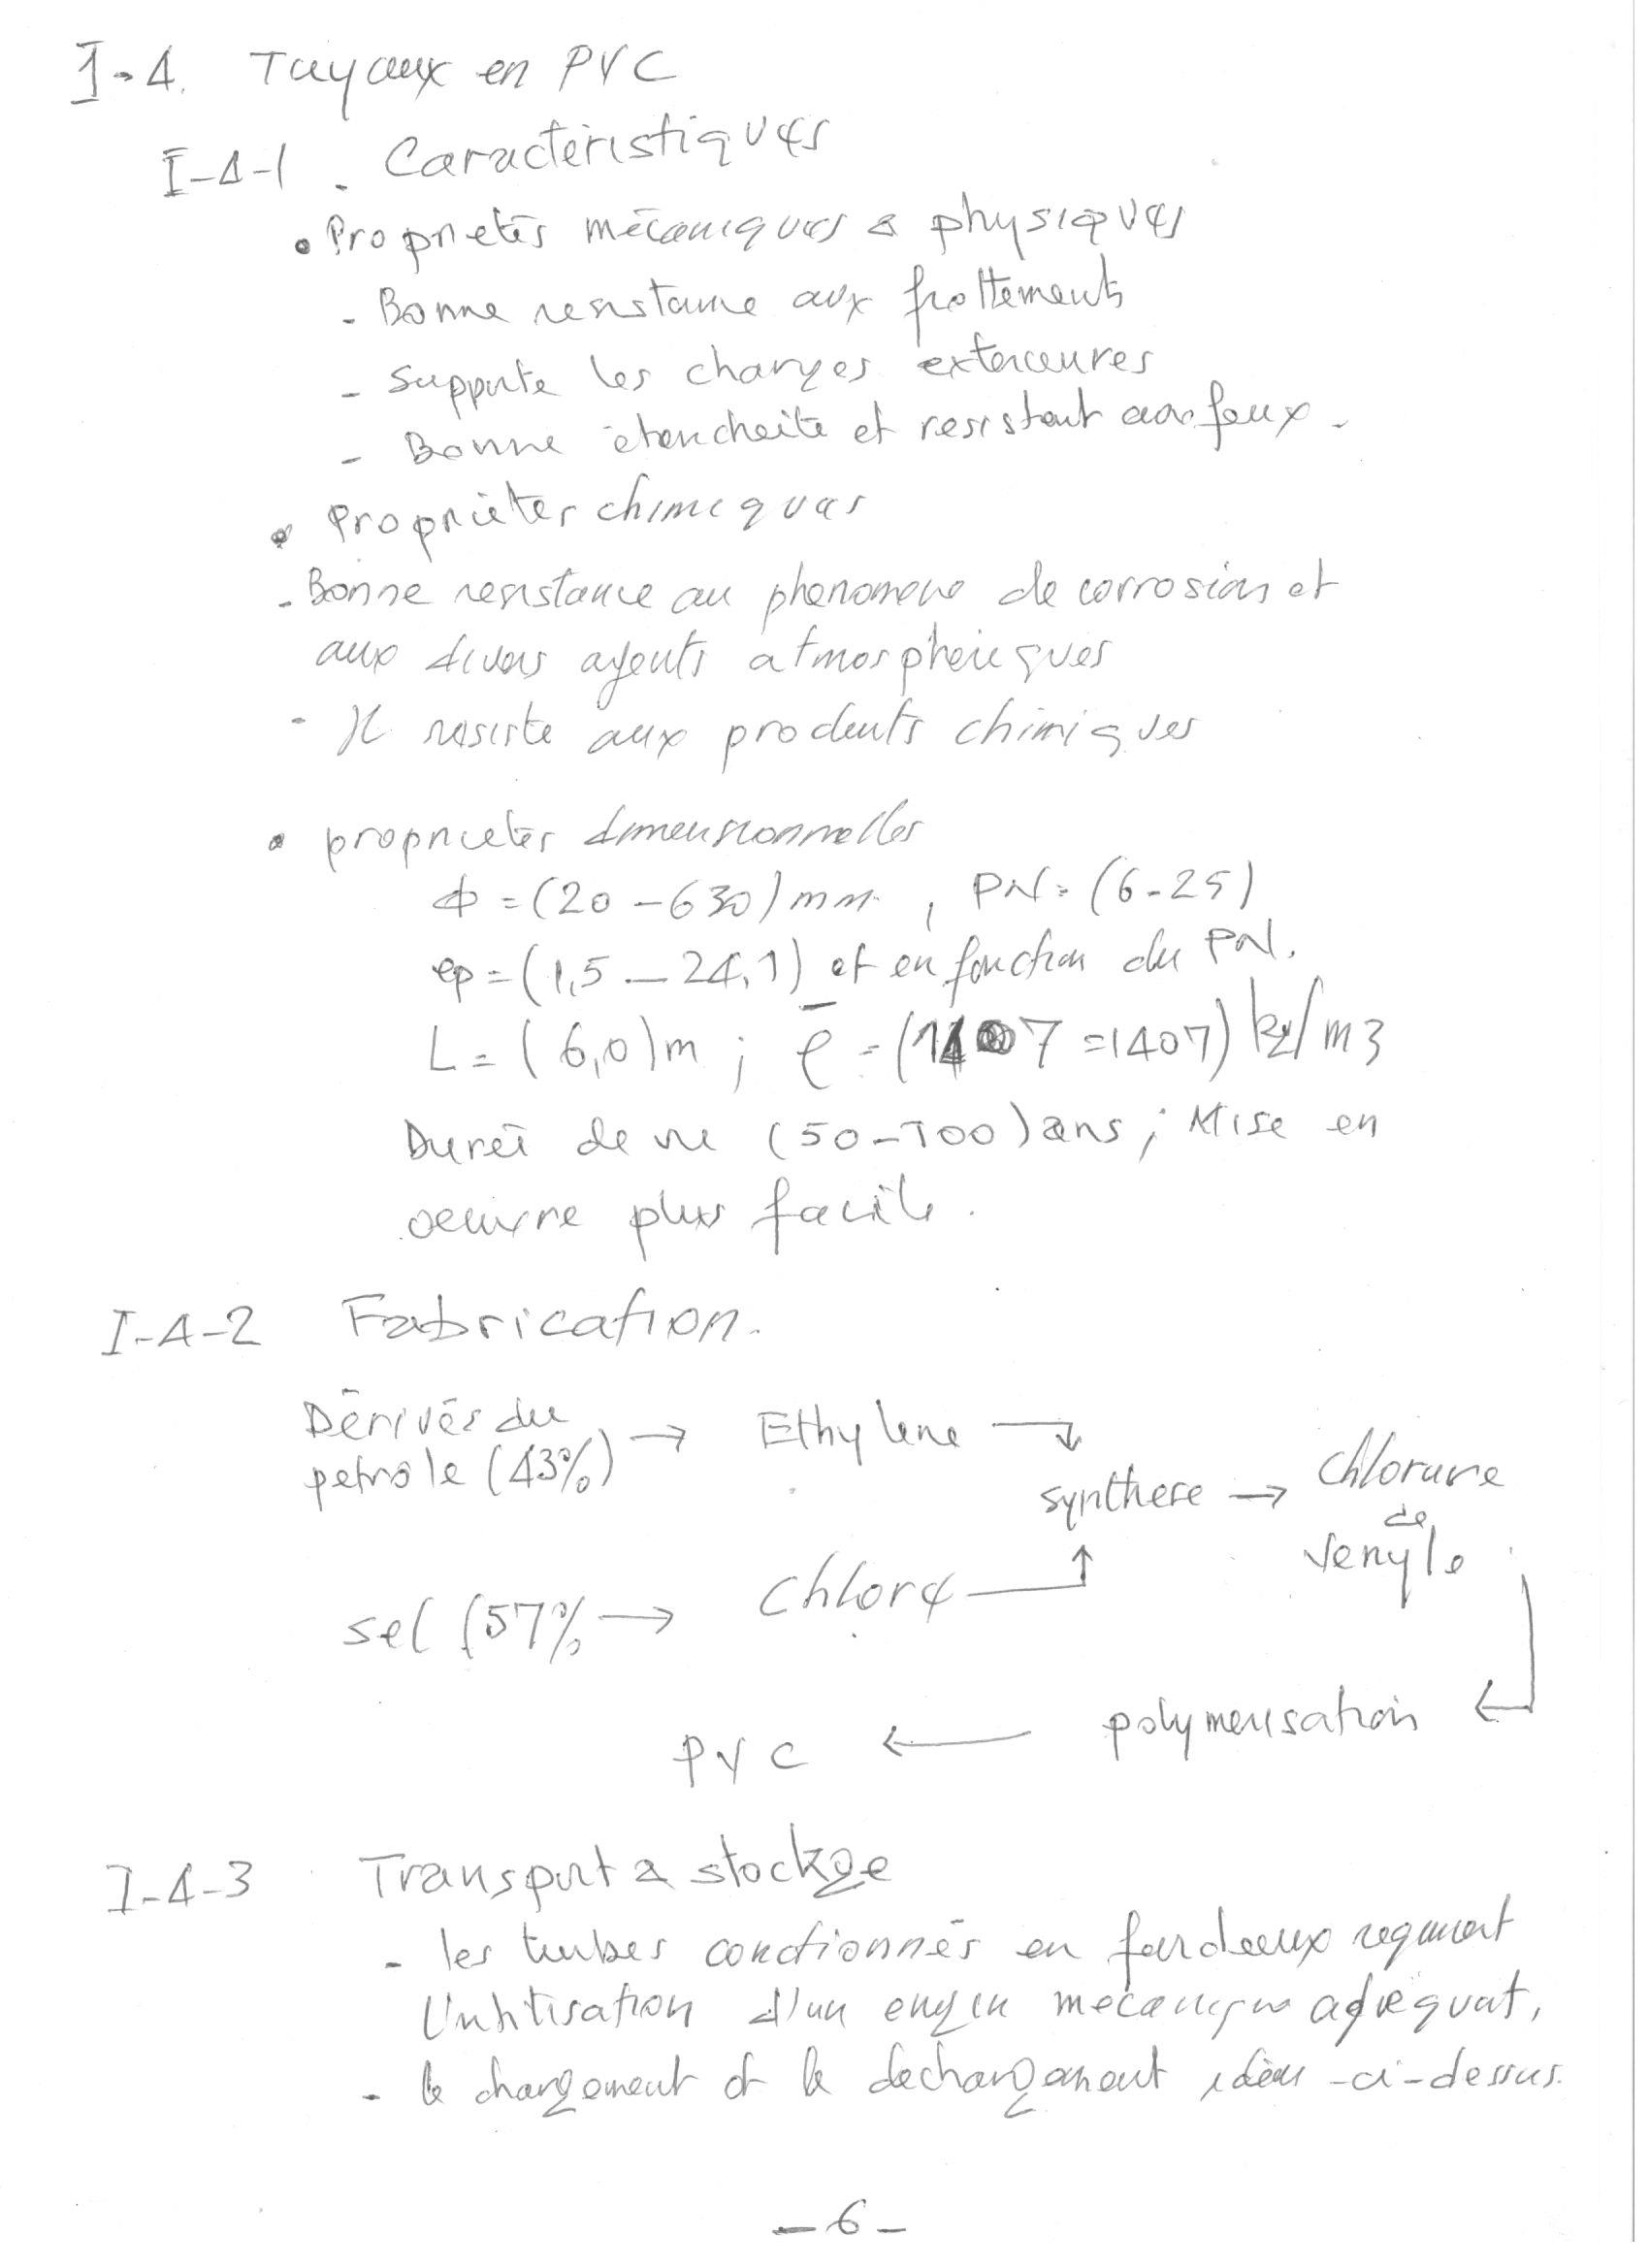 I-4. Tuyaux en PVC
I-4-1. Caractéristiques
• Propriétés mécaniques & physiques
- Bonne resistance aux frottements
- Supporte les charges exterieures
- Bonne étancheité et resistant aux feux.
• Propriétés chimiques
- Bonne resistance au phenomene de corrosion et
aux divers agents atmospheriques
- Il resiste aux produits chimiques
• propriétés dimensionnelles
ф = (20 - 630) mm, PN = (6-25)
ep = (1,5 - 24,1) et en fonction du PN.
L = (6,0) m ; ρ̄ = (1407 = 1407) kg/m3
Dureé de vie (50-100) ans ; Mise en
oeuvre plus facile.
I-4-2 Fabrication.
Dérivés du
petrole (43%) → Ethylene →
synthese → chlorure
de
venyle
sel (57% → chlore →
PVC ← polymerisation ←
I-4-3 Transport & stockge
- les tubes condtionnés en fardeaux requierent
l'utilisation d'un engin mecanique adéquat,
- le chargement et le dechargement idem -ci-dessus.
- 6 -